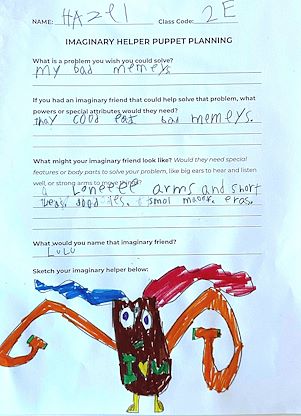 NAME: HAzel Class Code: 2E
IMAGINARY HELPER PUPPET PLANNING
What is a problem you wish you could solve?
my bad memeys
If you had an imaginary friend that could help solve that problem, what
powers or special attributes would they need?
thay cood eat bad memeys.
What might your imaginary friend look like? Would they need special
features or body parts to solve your problem, like big ears to hear and listen
well, or strong arms to move things?
a arms and short
smol eras.
What would you name that imaginary friend?
LuLu
Sketch your imaginary helper below:
I